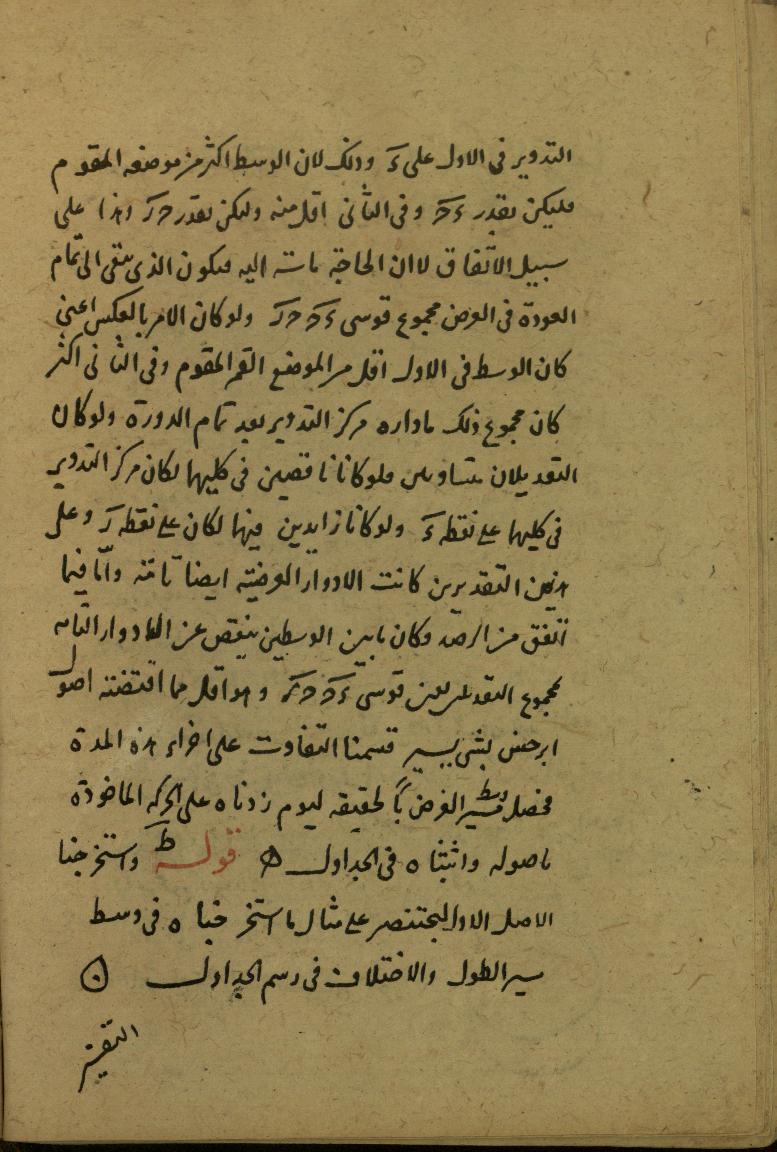 التدوير فى الاول على ءَ وذلك لان الوسط اكثر من موضعه المقوم
فليكن بقدر ءَ حَ وفى الثانى اقل منه وليكن بقدر حَ رَ وهذا على
سبيل الاتفاق لا ان الحاجة ماسة اليه فيكون الذى يبقى الى تمام
العودة فى العرض مجموع قوسى ءَ حَ حَ رَ ولو كان الامر بالعكس اعنى
كان الوسط فى الاول اقل من الموضع القمر المقوم وفى الثانى اكثر
كان مجموع ذلك ماداره مركز التدوير بعد تمام الدورة ولو كان
التعديلان متساويين فلو كانا ناقصين فى كليهما لكان مركز التدوير
فى كليهما على نقطة ءَ ولو كانا زايدين فيها لكان على نقطة رَ وعلى
هذين التقديرين كانت الادوار العرضيته ايضا تامة وامّا فيما
اتفق من الرصد وكان مابين الوسطين ينقص عن الادوار التامه
مجموع التعديلين اعنى قوسى ءَ حَ حَ رَ وهو اقل مما اقتضته اصول
ابرخس بشئ يسير قسمنا التفاوت على اجزاء هذه المدة
فحصل وسط مسير العرض بالحقيقه ليوم زدناه على الحركه الماخوذة
باصوله واثبتناه فى الجداول ه قوله ط واستخرجنا
الاصل الاول لبختنصر على مثال ما استخرجناه فى وسط
سير الطول والاختلاف فى رسم الجداول ه